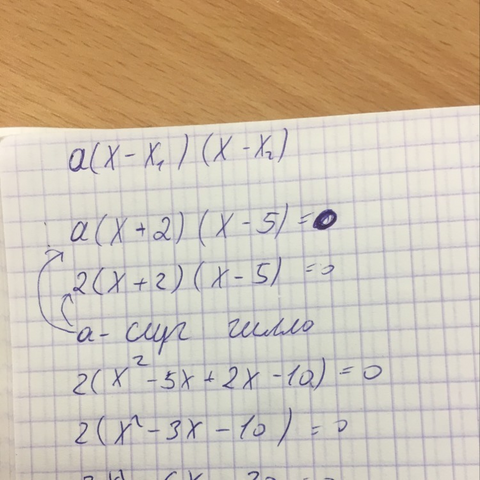 a(x - x₁)(x - x₂)
a(x + 2)(x - 5) = 0
2(x + 2)(x - 5) = 0
a -
2(x² - 5x + 2x - 10) = 0
2(x² - 3x - 10) = 0